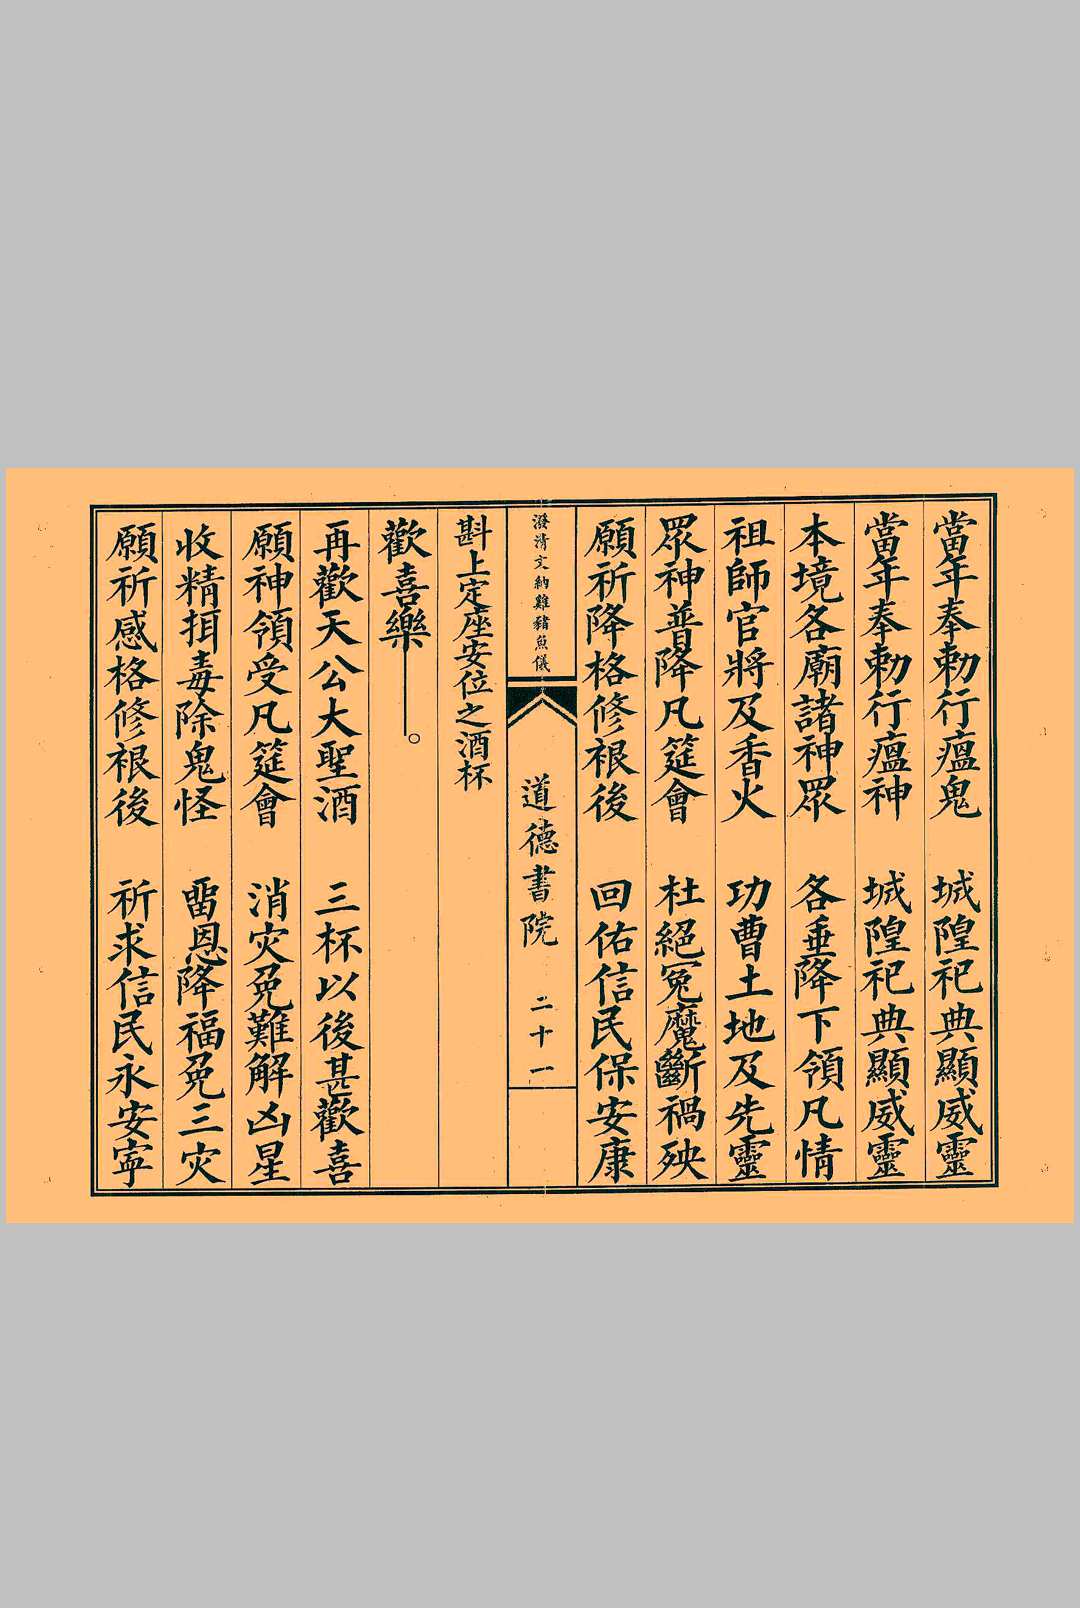 當年奉勅行瘟鬼　城隍祀典顯威靈
當年奉勅行瘟神　城隍祀典顯威靈
本境各廟諸神眾　各垂降下領凡情
祖師官將及香火　功曹土地及先靈
眾神普降凡筵會　杜絕冤魔斷禍殃
願祈降格修禳後　回佑信民保安康
潑清文納雞豬魚儀
道德書院　二十一
斟上定座安位之酒杯
歡喜樂｜。
再歡天公大聖酒　三杯以後甚歡喜
願神領受凡筵會　消灾免難解凶星
收精押毒除鬼怪　留恩降福免三灾
願祈感格修禳後　祈求信民永安寧